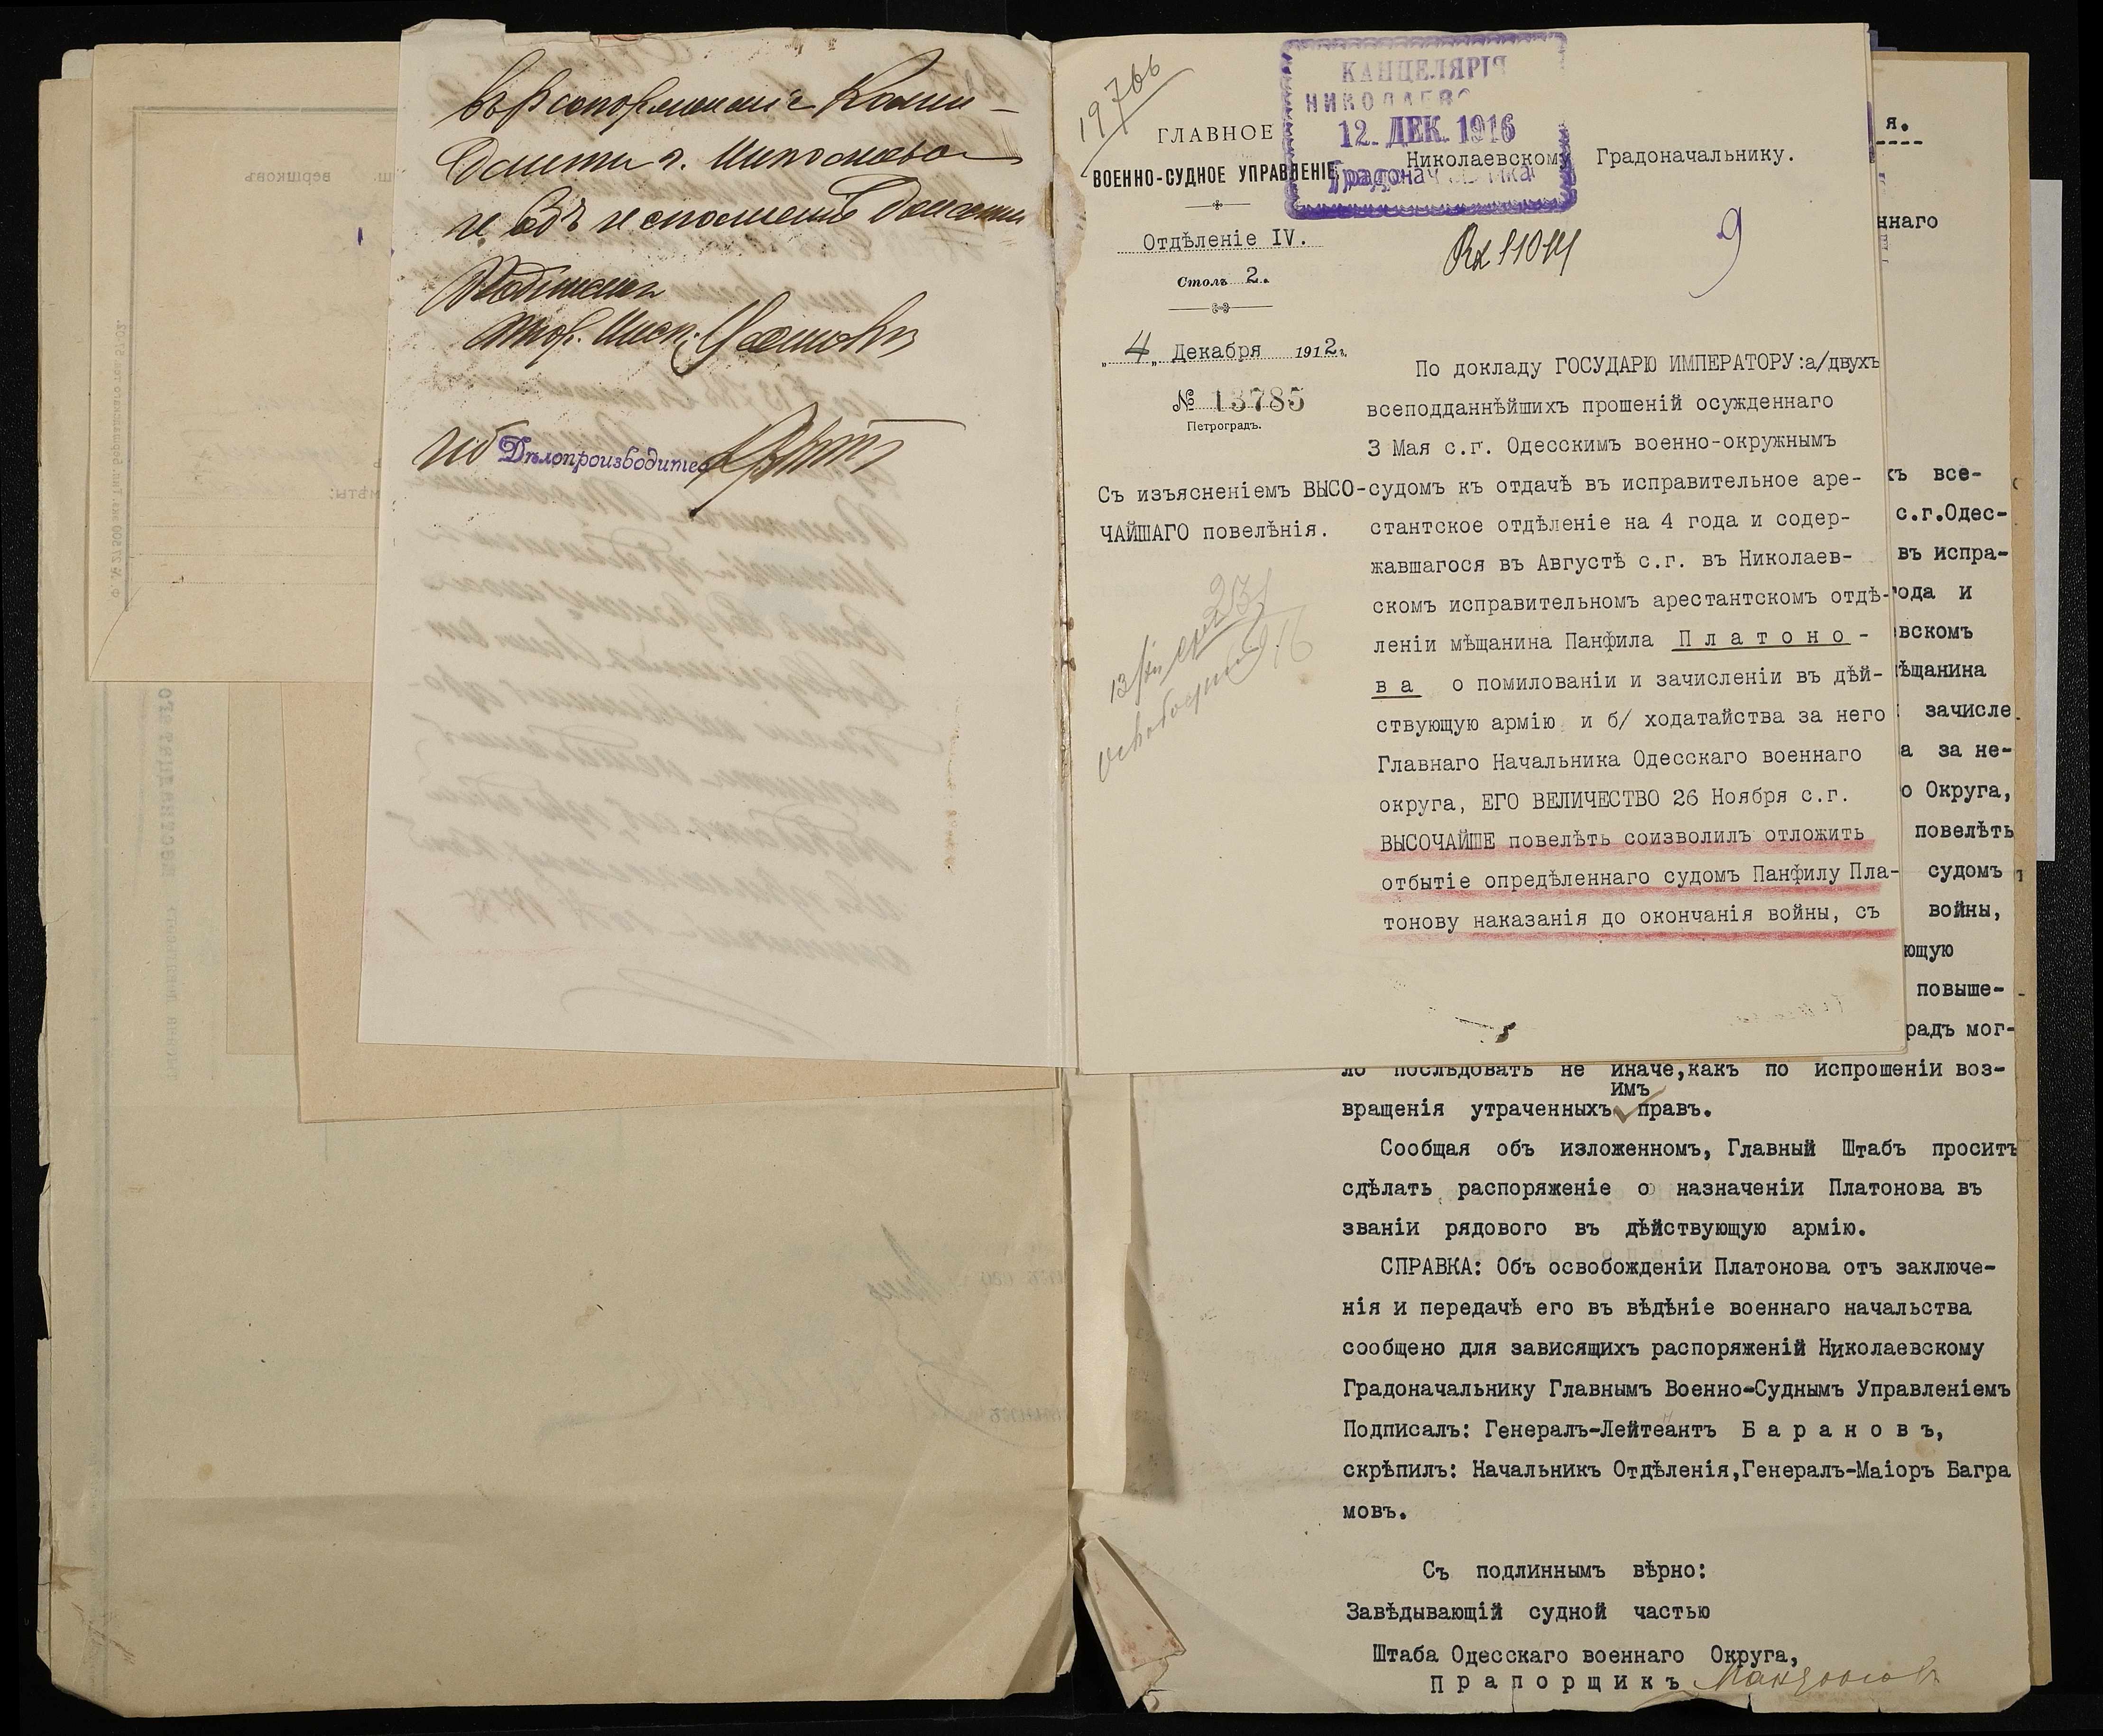 въ распоряженіе Комен-
данта г. Николаева
и объ исполненіи донести
Подписалъ
Тюр. Инсп.
Дѣлопроизводитель
19766
КАНЦЕЛЯРІЯ
НИКОЛАЕВС
12. ДЕК. 1916
Градонач
ГЛАВНОЕ
ВОЕННО-СУДНОЕ УПРАВЛЕНІЕ
Отдѣленіе IV.
Столъ 2.
„4„ Декабря 1912г.
№ 13785
Петроградъ.
Съ изъясненіемъ ВЫСО-
ЧАЙШАГО повелѣнія.
Николаевскому Градоначальнику.
Вх 11014
9
По докладу ГОСУДАРЮ ИМПЕРАТОРУ:а/двухъ
всеподданнѣйшихъ прошеній осужденнаго
3 Мая с.г. Одесскимъ военно-окружнымъ
судомъ къ отдачѣ въ исправительное аре-
стантское отдѣленіе на 4 года и содер-
жавшагося въ Августѣ с.г. въ Николаев-
скомъ исправительномъ арестантскомъ отдѣ-
леніи мѣщанина Панфила П л а т о н о -
в а о помилованіи и зачисленіи въ дѣй-
ствующую армію и б/ ходатайства за него
Главнаго Начальника Одесскаго военнаго
округа, ЕГО ВЕЛИЧЕСТВО 26 Ноября с.г.
ВЫСОЧАЙШЕ повелѣть соизволилъ отложить
отбытіе опредѣленнаго судомъ Панфилу Пла-
тонову наказанія до окончанія войны, съ
я.
ннаго
хъ все-
с.г.Одес-
въ испра-
года и
вскомъ
ѣщанина
зачисле
а за не-
о Округа,
повелѣть
судомъ
войны,
ющую
повыше-
радъ мог-
ло послѣдовать не иначе,какъ по испрошеніи воз-
имъ
вращенія утраченныхъ правъ.
Сообщая объ изложенномъ, Главный Штабъ проситъ
сдѣлать распоряженіе о назначеніи Платонова въ
званіи рядового въ дѣйствующую армію.
СПРАВКА: Объ освобожденіи Платонова отъ заключе-
нія и передачѣ его въ вѣдѣніе военнаго начальства
сообщено для зависящихъ распоряженій Николаевскому
Градоначальнику Главнымъ Военно-Суднымъ Управленіемъ
Подписалъ: Генералъ-Лейтеантъ Б а р а н о в ъ,
скрѣпилъ: Начальникъ Отдѣленія,Генералъ-Маіоръ Багра
мовъ.
Съ подлиннымъ вѣрно:
Завѣдывающій судной частью
Штаба Одесскаго военнаго Округа,
П р а п о р щ и к ъ